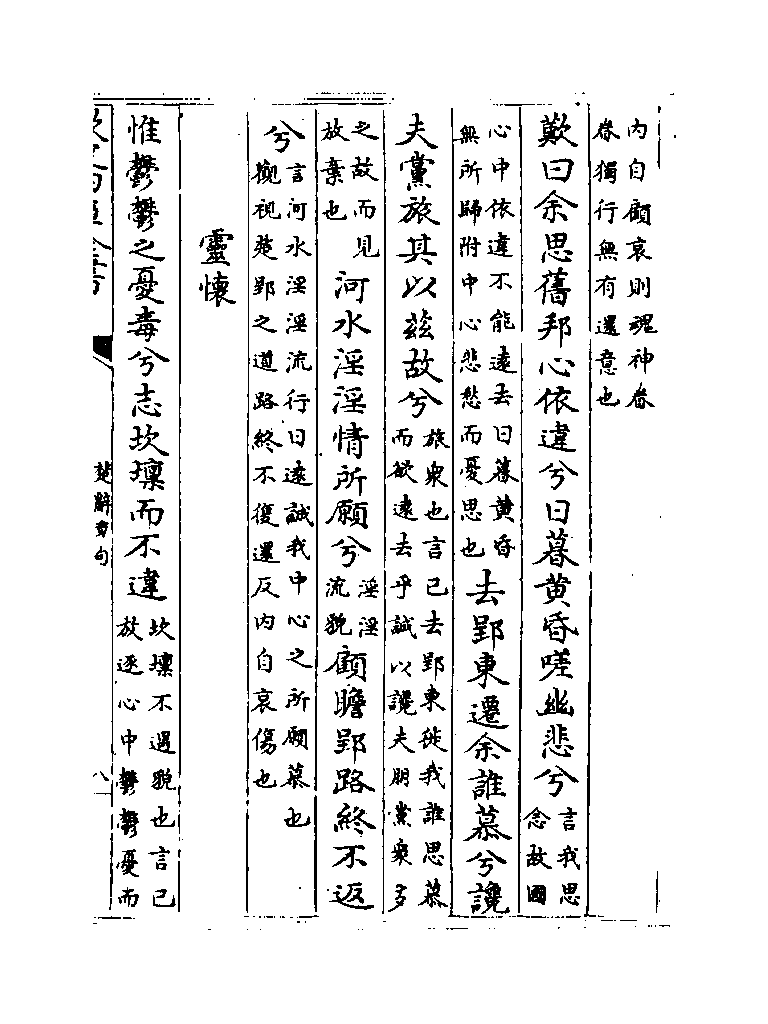 内自顧哀則魂神眷
眷獨行無有還意也
歎曰余思舊邦心依違兮日暮黄昏嗟幽悲兮
言我思
念故國
心中依違不能遠去日暮黄昏
無所歸附中心悲愁而憂思也
去郢東遷余誰慕兮讒
夫黨旅其以兹故兮
旅衆也言己去郢東徙我誰思慕
而欲遠去乎誠以讒夫朋黨衆多
之故而見
放棄也
河水淫淫情所願兮
淫淫
流貌
顧瞻郢路終不返
兮
言河水淫淫流行日遠誠我中心之所願慕也
觀視楚郢之道路終不復還反内自哀傷也
靈懷
惟鬱鬱之憂毒兮志坎壈而不違
坎壈不遇貌也言己
放逐心中鬱鬱憂而
楚辭章句
八